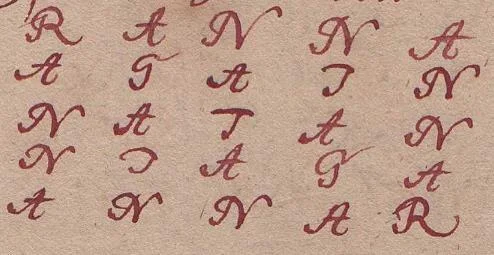 R A N N A
A G A I N
N A T A N
N I A G A
A N N A R